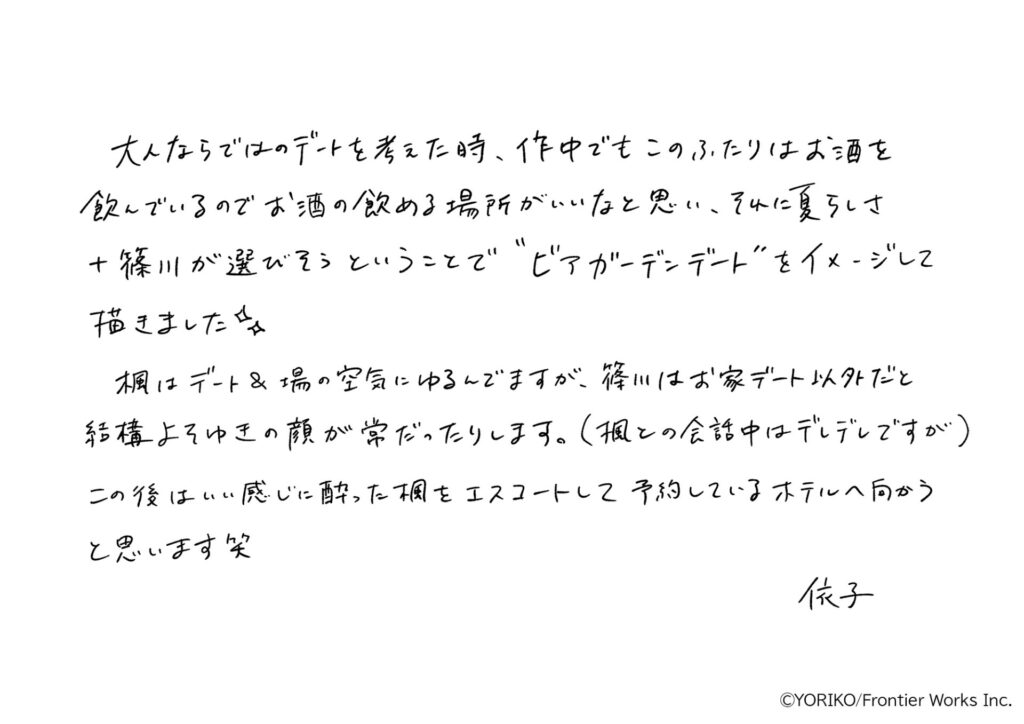 大人ならではのデートを考えた時、作中でもこのふたりはお酒を
飲んでいるのでお酒の飲める場所がいいなと思い、それに夏らしさ
+篠川が選びそうということで"ビアガーデンデート"をイメージして
描きました✨
楓はデート&場の空気にゆるんでますが、篠川はお家デート以外だと
結構よそゆきの顔が常だったりします。(楓との会話中はデレデレですが)
この後はいい感じに酔った楓をエスコートして予約しているホテルへ向かう
と思います笑
依子
©YORIKO/Frontier Works Inc.